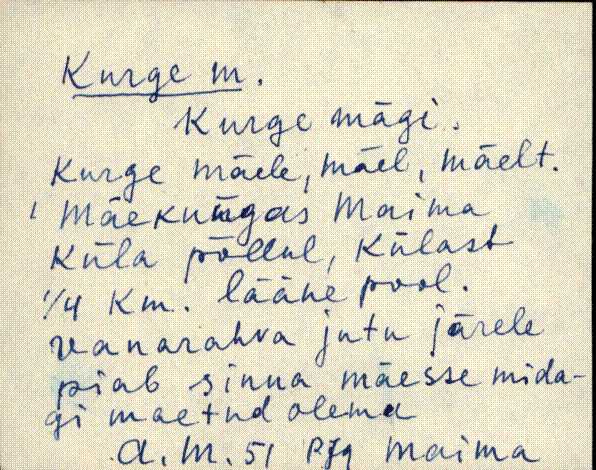 Kurge m.
Kurge mägi.
Kurge mäele, mäel, mäelt.
Mäeküngas Maima
Küla põllul, Külast
1/4 Km. lääne pool.
vanarahva jutu järele
piab sinna mäesse mida-
gi maetud olema
A. M. 51 PJg Maima